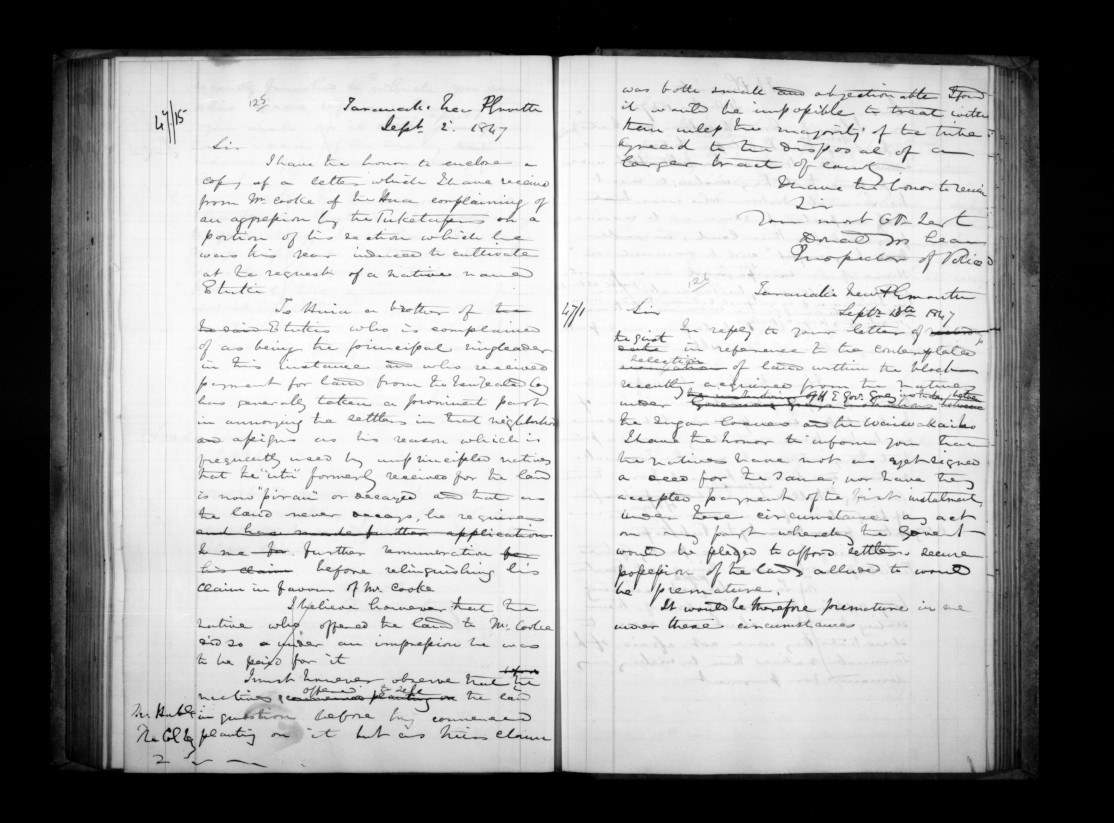 47/15
125
Taranaki. New Plymouth
Sept. 2. 1847
Sir
I have the honor to enclose a
copy of a letter which I have received
from Mr Cooke of he Hua complaining of
an aggression by the Puketapus on a
portion of his section which he
was this year induced to cultivate
at the request of a native named
Etuke
To Huia a brother of the
Etuke who is complained
of as being the principal ringleader
in this instance and who received
payment for land from the New Zealand Coy
has generally taken a prominent part
in annoying the settlers in that neighborhood
and assigns as his reason which is
frequently used by unprincipled natives
that he "utu" formerly received for the land
is now "pirau" or decayed and that as
the land never decays, he requires
and has made further application
to me for further remuneration for
his claim before relinquishing his
claim in favour of Mr. Cooke
I believe however that the
native who offered the land to Mr. Cooke
did so under an impression he was
to be paid for it
before
I must however observe that the
offered to sell
natives commenced planting on the land
in question before he commenced
planting on it but as this claim
The Honble
The Col Secy
was both small and objectionable
it would be impossible to treat with
them unless the majority of the tribe
agreed to the disposal of a
larger tract of country
I have the honor to remain
Sir
Your most Obt Sert
Donald McLean
Inspector of Police
126
Taranaki New Plymouth
Sept. 1847
47/1
Sir
In reply to your letter of
in reference to the contemplated
selection
of land within the block
recently acquired from the natives
the understanding of H E Govr. Grey
under Governor Grey's instructions between
the Sugar Loaves and the Waiwakaiho
I have the honor to inform you that
the natives have not as yet signed
a deed for the same, nor have they
accepted payment of the first instalment
under these circumstances any act
on my part whereby the Govemt
would be pledged to afford settlers secure
possession of the land alluded to would
be premature.
It would be therefore premature in me
under these circumstances